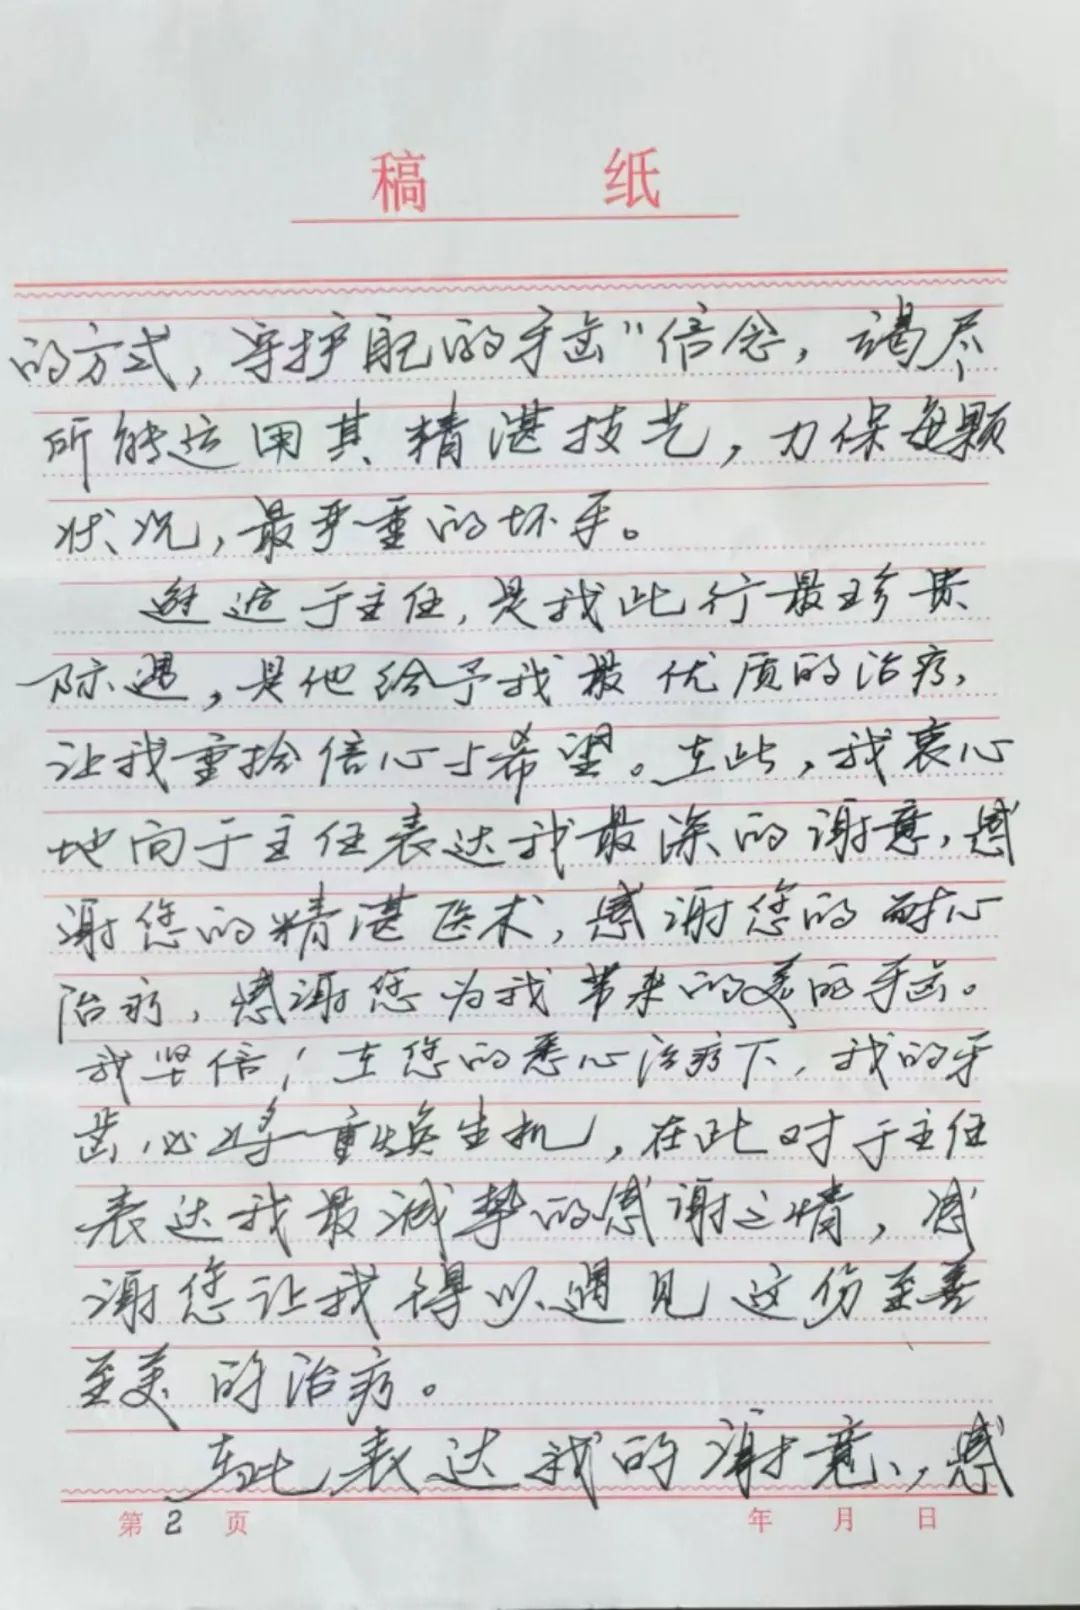 稿 纸
的方式，守护配的牙齿"信念，竭尽
所能运用其精湛技艺，力保每颗
状况，最严重的坏牙。
邂逅于主任，是我此行最珍贵
际遇，是他给予我最优质的治疗，
让我重拾信心与希望。在此，我衷心
地向于主任表达我最深的谢意，感
谢您的精湛医术，感谢您的耐心
治疗，感谢您为我带来的美丽牙齿。
我坚信！在您的悉心治疗下，我的牙
齿，必将重焕生机，在此对于主任
表达我最诚挚的感谢之情，感
谢您让我得以遇见这份至善
至美的治疗。
在此，表达我的谢意，感
第 2 页 年 月 日